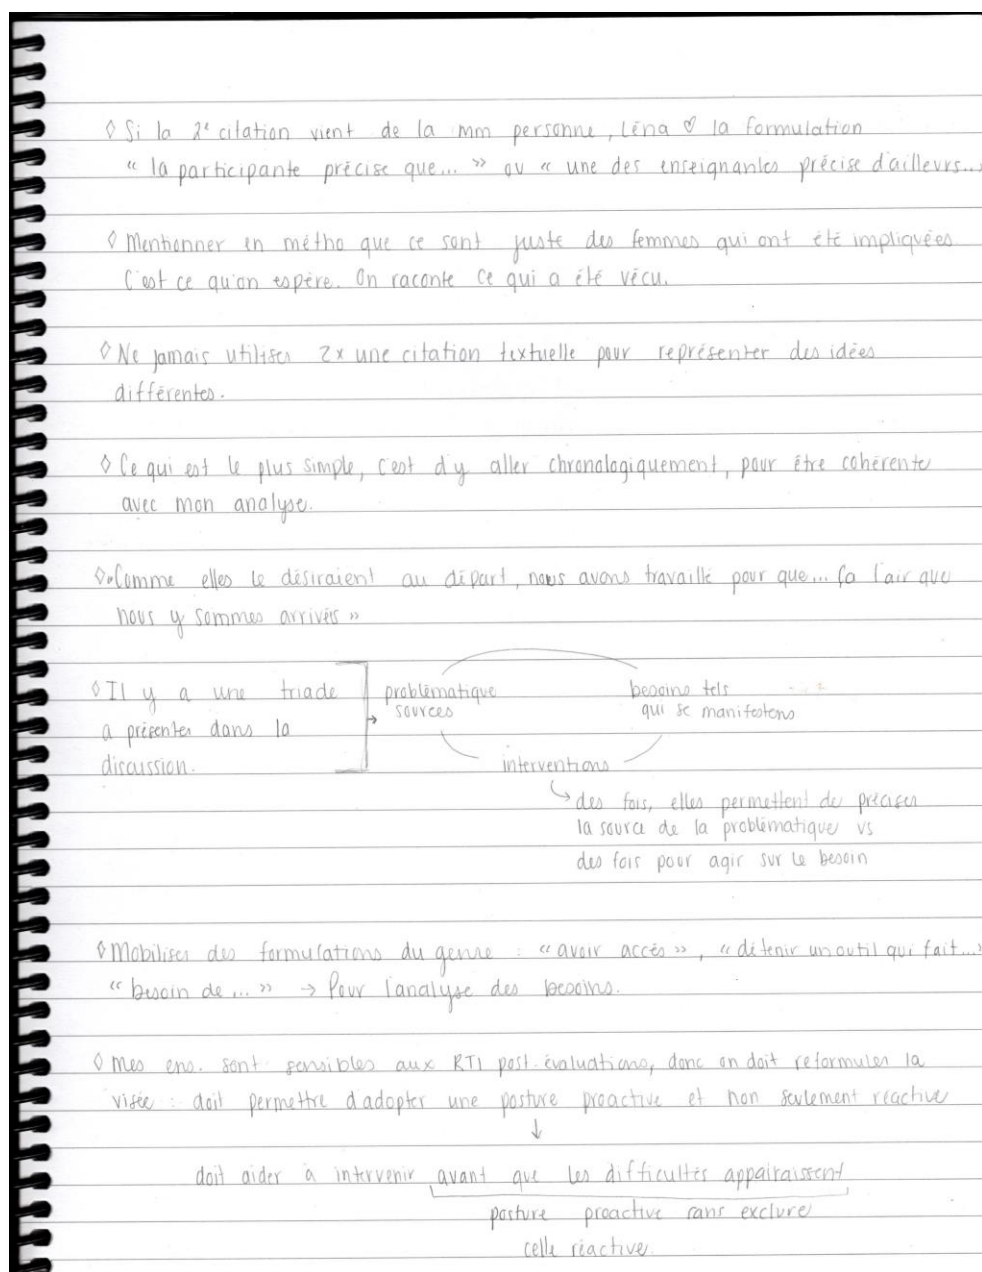 ◊ Si la 2e citation vient de la mm personne, Léna ♡ la formulation
« la participante précise que... » ou « une des enseignantes précise d'ailleurs...
◊ Mentionner en métho que ce sont juste des femmes qui ont été impliquées.
C'est ce qu'on espère. On raconte ce qui a été vécu.
◊ Ne jamais utiliser 2x une citation textuelle pour représenter des idées
différentes.
◊ Ce qui est le plus simple, c'est d'y aller chronologiquement, pour être cohérente
avec mon analyse.
◊ « Comme elles le désiraient au départ, nous avons travaillé pour que... ça l'air que
nous y sommes arrivés »
◊ Il y a une triade
a présenter dans la
discussion.
→ problématique
sources
besoins tels
qui se manifestons
interventions
↳ des fois, elles permettent de préciser
la source de la problématique vs
des fois pour agir sur le besoin
◊ Mobiliser des formulations du genre : « avoir accès », « détenir un outil qui fait...
« besoin de ... » → Pour l'analyse des besoins.
◊ Mes ens. sont sensibles aux RTI post-évaluations, donc on doit reformuler la
visée : doit permettre d'adopter une posture proactive et non seulement réactive
↓
doit aider à intervenir avant que les difficultés appairaissent
posture proactive sans exclure
celle réactive.